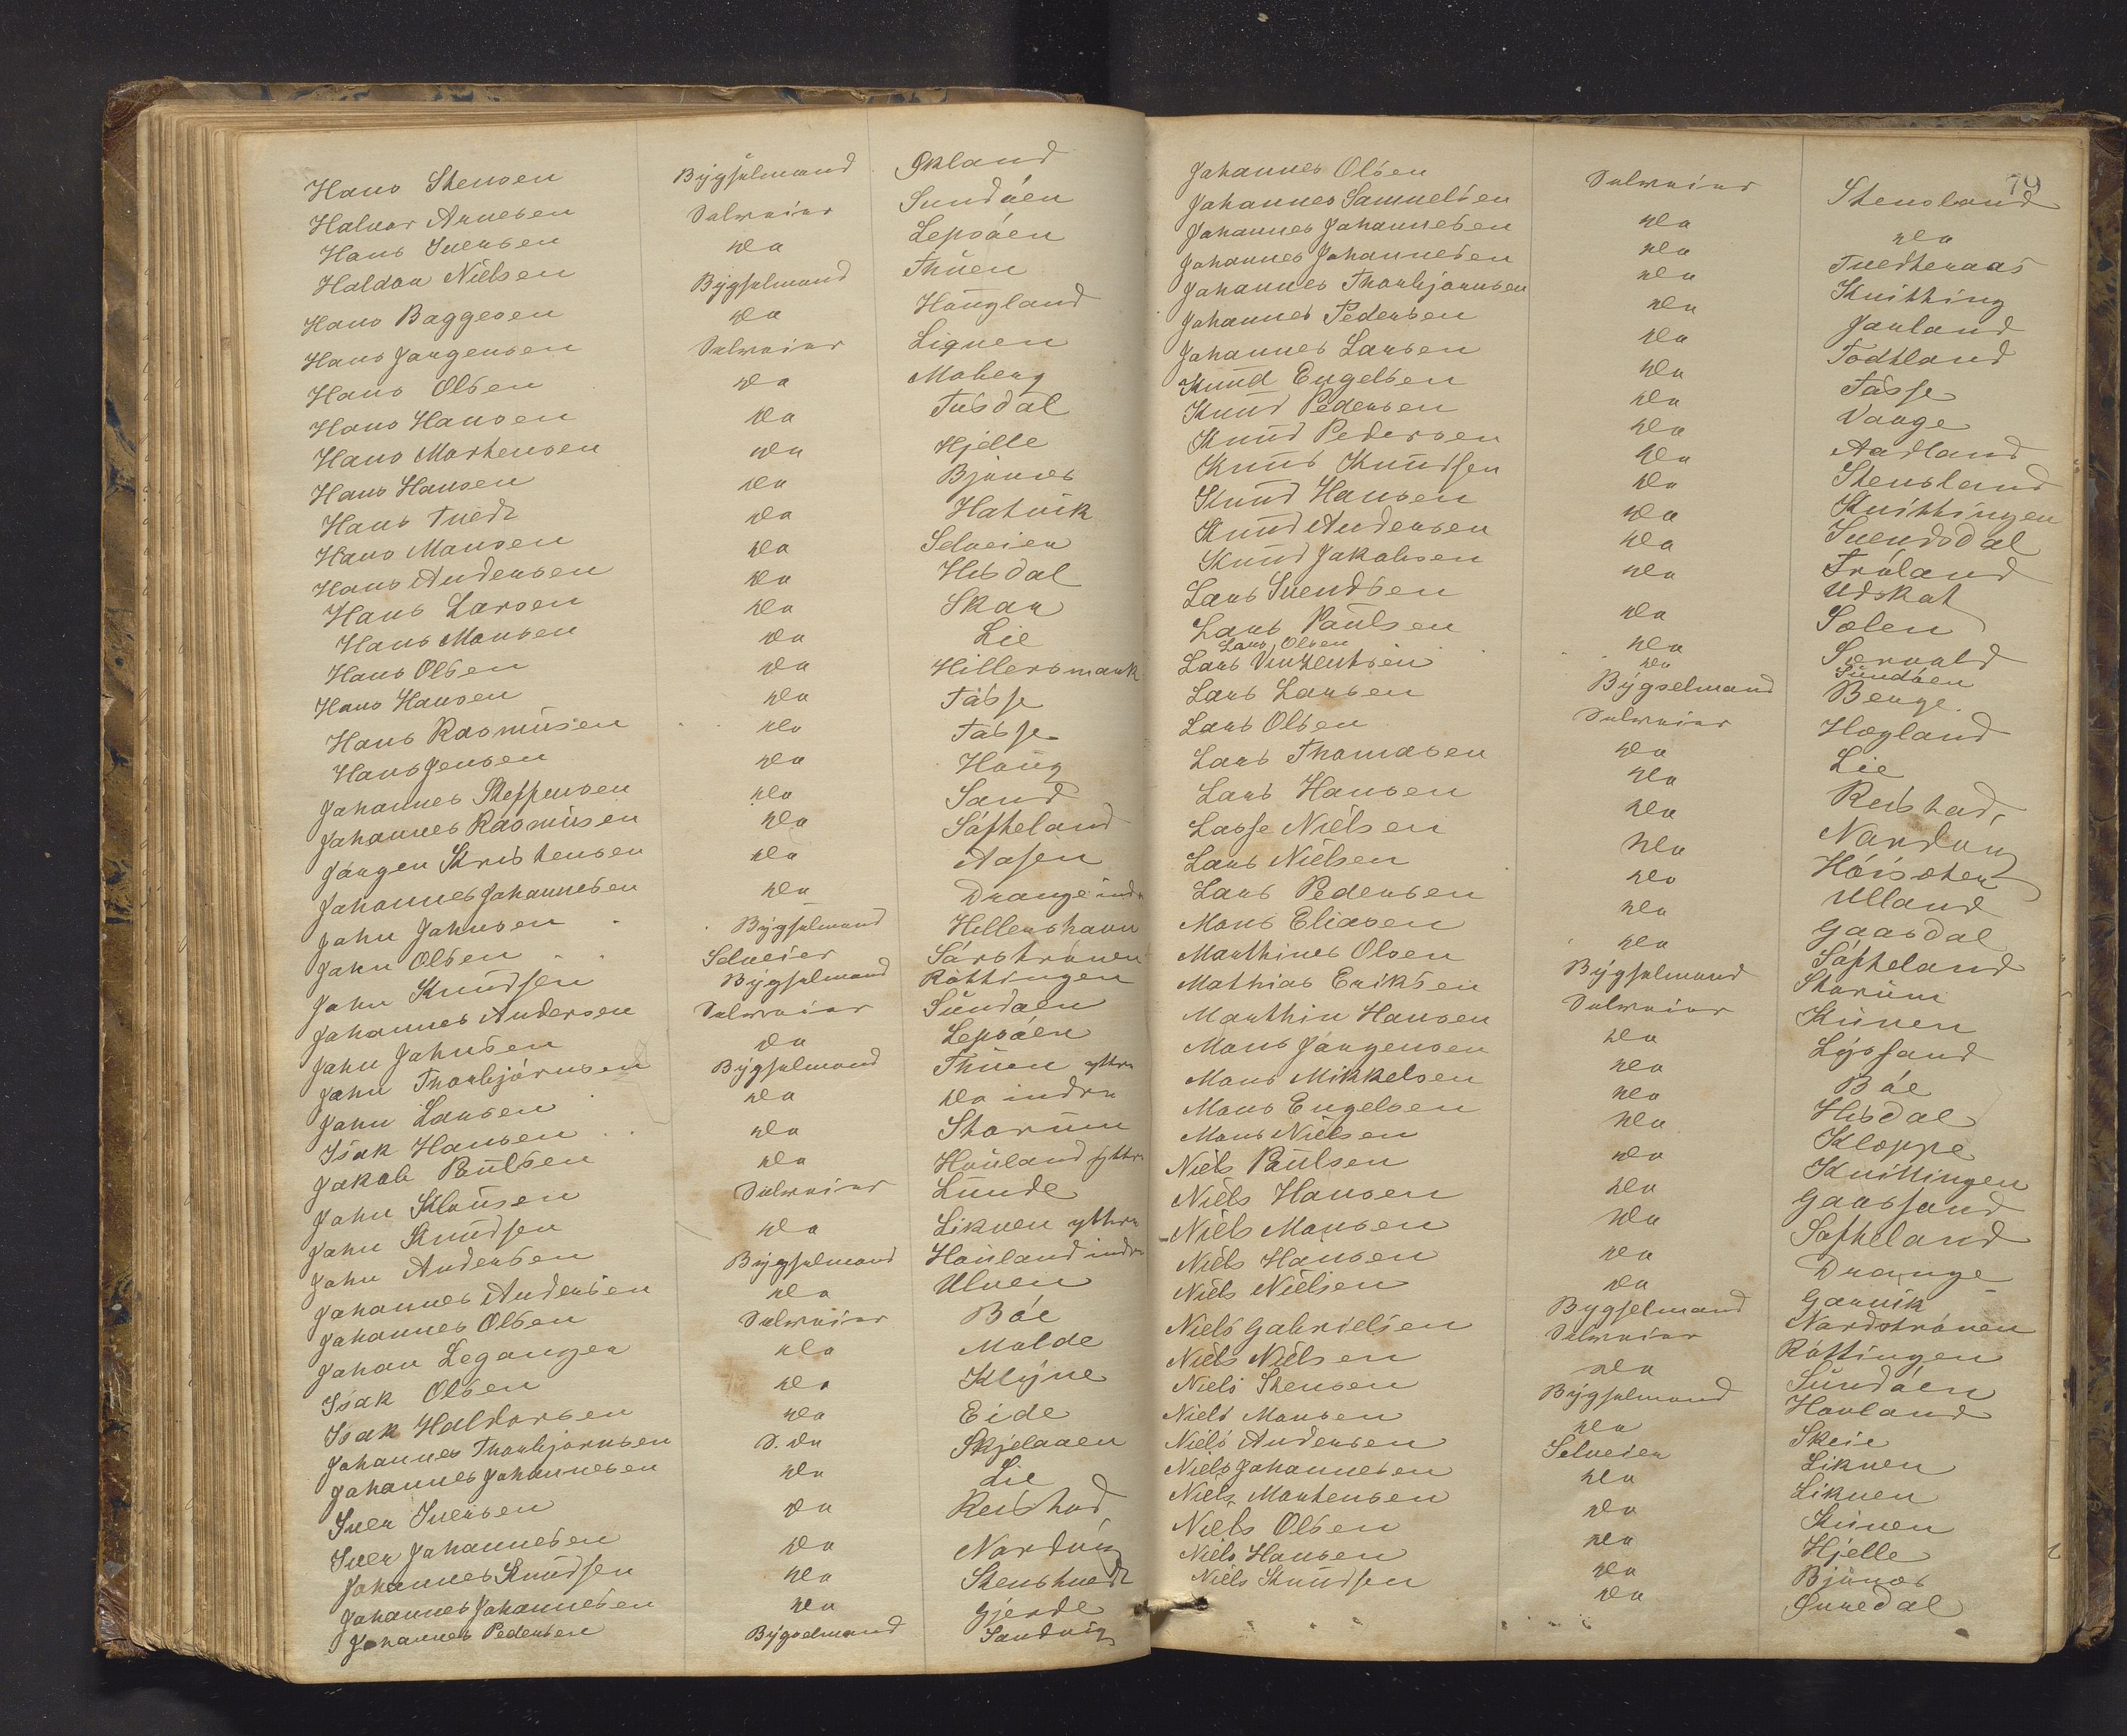 Hans Stensen Bygselmand Økland
Halvor Arnesen Selveier Sundøen
Hans Iversen do Lepsøen
Haldor Nielsen Bygselmand Thuen
Hans Baggesen do Hougland
Hans Jørgensen Selveier Liqnen
Hans Olsen do Moberg
Hans Hansen do Tusdal
Hans Mortensen do Hjelle
Hans Hansen do Bjånes
Hans Tvedt do Hatvik
Hans Monsen do Selveier
Hans Andersen do Hisdal
Hans Larsen do Skar
Hans Monsen do Lie
Hans Olsen do Hillersmark
Hans Hansen do Tøsse
Hans Rasmusen do Tøsse
Hans Jensen do Houg
Johannes Steffensen do Sand
Johannes Rasmusen do Søfteland
Jørgen Kristensen do Aasen
Johannes Johannesen do Drange indr
John Johnsen Bygselmand Hillershavn
John Olsen Selveier Sørstrønen
John Knudsen Bygselmand Røttingen
Johannes Andersen Selveier Sundøen
John Johnsen do Lepsøen
John Thorbjørnsen Bygselmand Thuen ythre
John Larsen do do indre
Isak Hansen do Storum
Jakob Poulsen do Houland ythre
John Klousen Selveier Lunde
John Knudsen do Liknen ythre
John Andersen Bygselmand Houland indre
Johannes Andersen do Ulven
Johannes Olsen Selveier Bøe
Johan Legangen do Molde
Isak Olsen do Klyne
Isak Haldorsen do Eide
Johannes Thorbjørnsen S. do Skjelaaen
Johannes Johannesen do Lie
Iver Iversen do Reistad
Iver Johannesen do Nordvig
Johannes Knudsen do Stenstvedt
Johannes Johannesen do Gjerde
Johannes Pedersen Bygselmand Sandvig
79
Johannes Olsen Selveier Stensland
Johannes Samuelsen do do
Johannes Johannesen do Tvedteraas
Johannes Johannesen do Knitting
Johannes Thorbjørnsen do Jarland
Johannes Pedersen do Todtland
Johannes Larsen do Tøsse
Knud Engelsen do Vange
Knud Pedersen do Aadland
Knud Pedersen do Stensland
Knud Knudsen do Knittingen
Knud Hansen do Svendsdal
Knud Andersen do Trøland
Knud Jakobsen do Udskot
Lars Svendsen do Solen
Lars Poulsen do Sørvold
Lars Olsen do Sundøen
Lars Vinzentsen Bygselmand Berge
Lars Larsen Selveier Hægland
Lars Olsen do Lie
Lars Thomasen do Reistad
Lars Hansen do Nordvig
Lasse Nielsen do Høisæter
Lars Nielsen do Ulland
Lars Pedersen do Gaasdal
Mons Eliasen do Søfteland
Marthines Olsen Bygselmand Storum
Mathias Eriksen Selveier Kuven
Marthin Hansen do Lyssand
Mons Jørgensen do Bøe
Mons Mikkelsen do Hisdal
Mons Engelsen do Kloppe
Mons Nielsen do Knittingen
Niels Poulsen do Gaassand
Niels Hansen do Søfteland
Niels Monsen do Drange
Niels Hansen do Garvik
Niels Nielsen Bygselmand Nordstrønen
Niels Gabrielsen Selveier Røttingen
Niels Nielsen do Sundøen
Niels Stensen Bygselmand Hovland
Niels Monsen do Skeie
Niels Andersen Selveier Liknen
Niels Johannesen do Liknen
Niels Mortensen do Kuven
Niels Olsen do Hjelle
Niels Hansen do Bjånes
Niels Knudsen do Øvredal